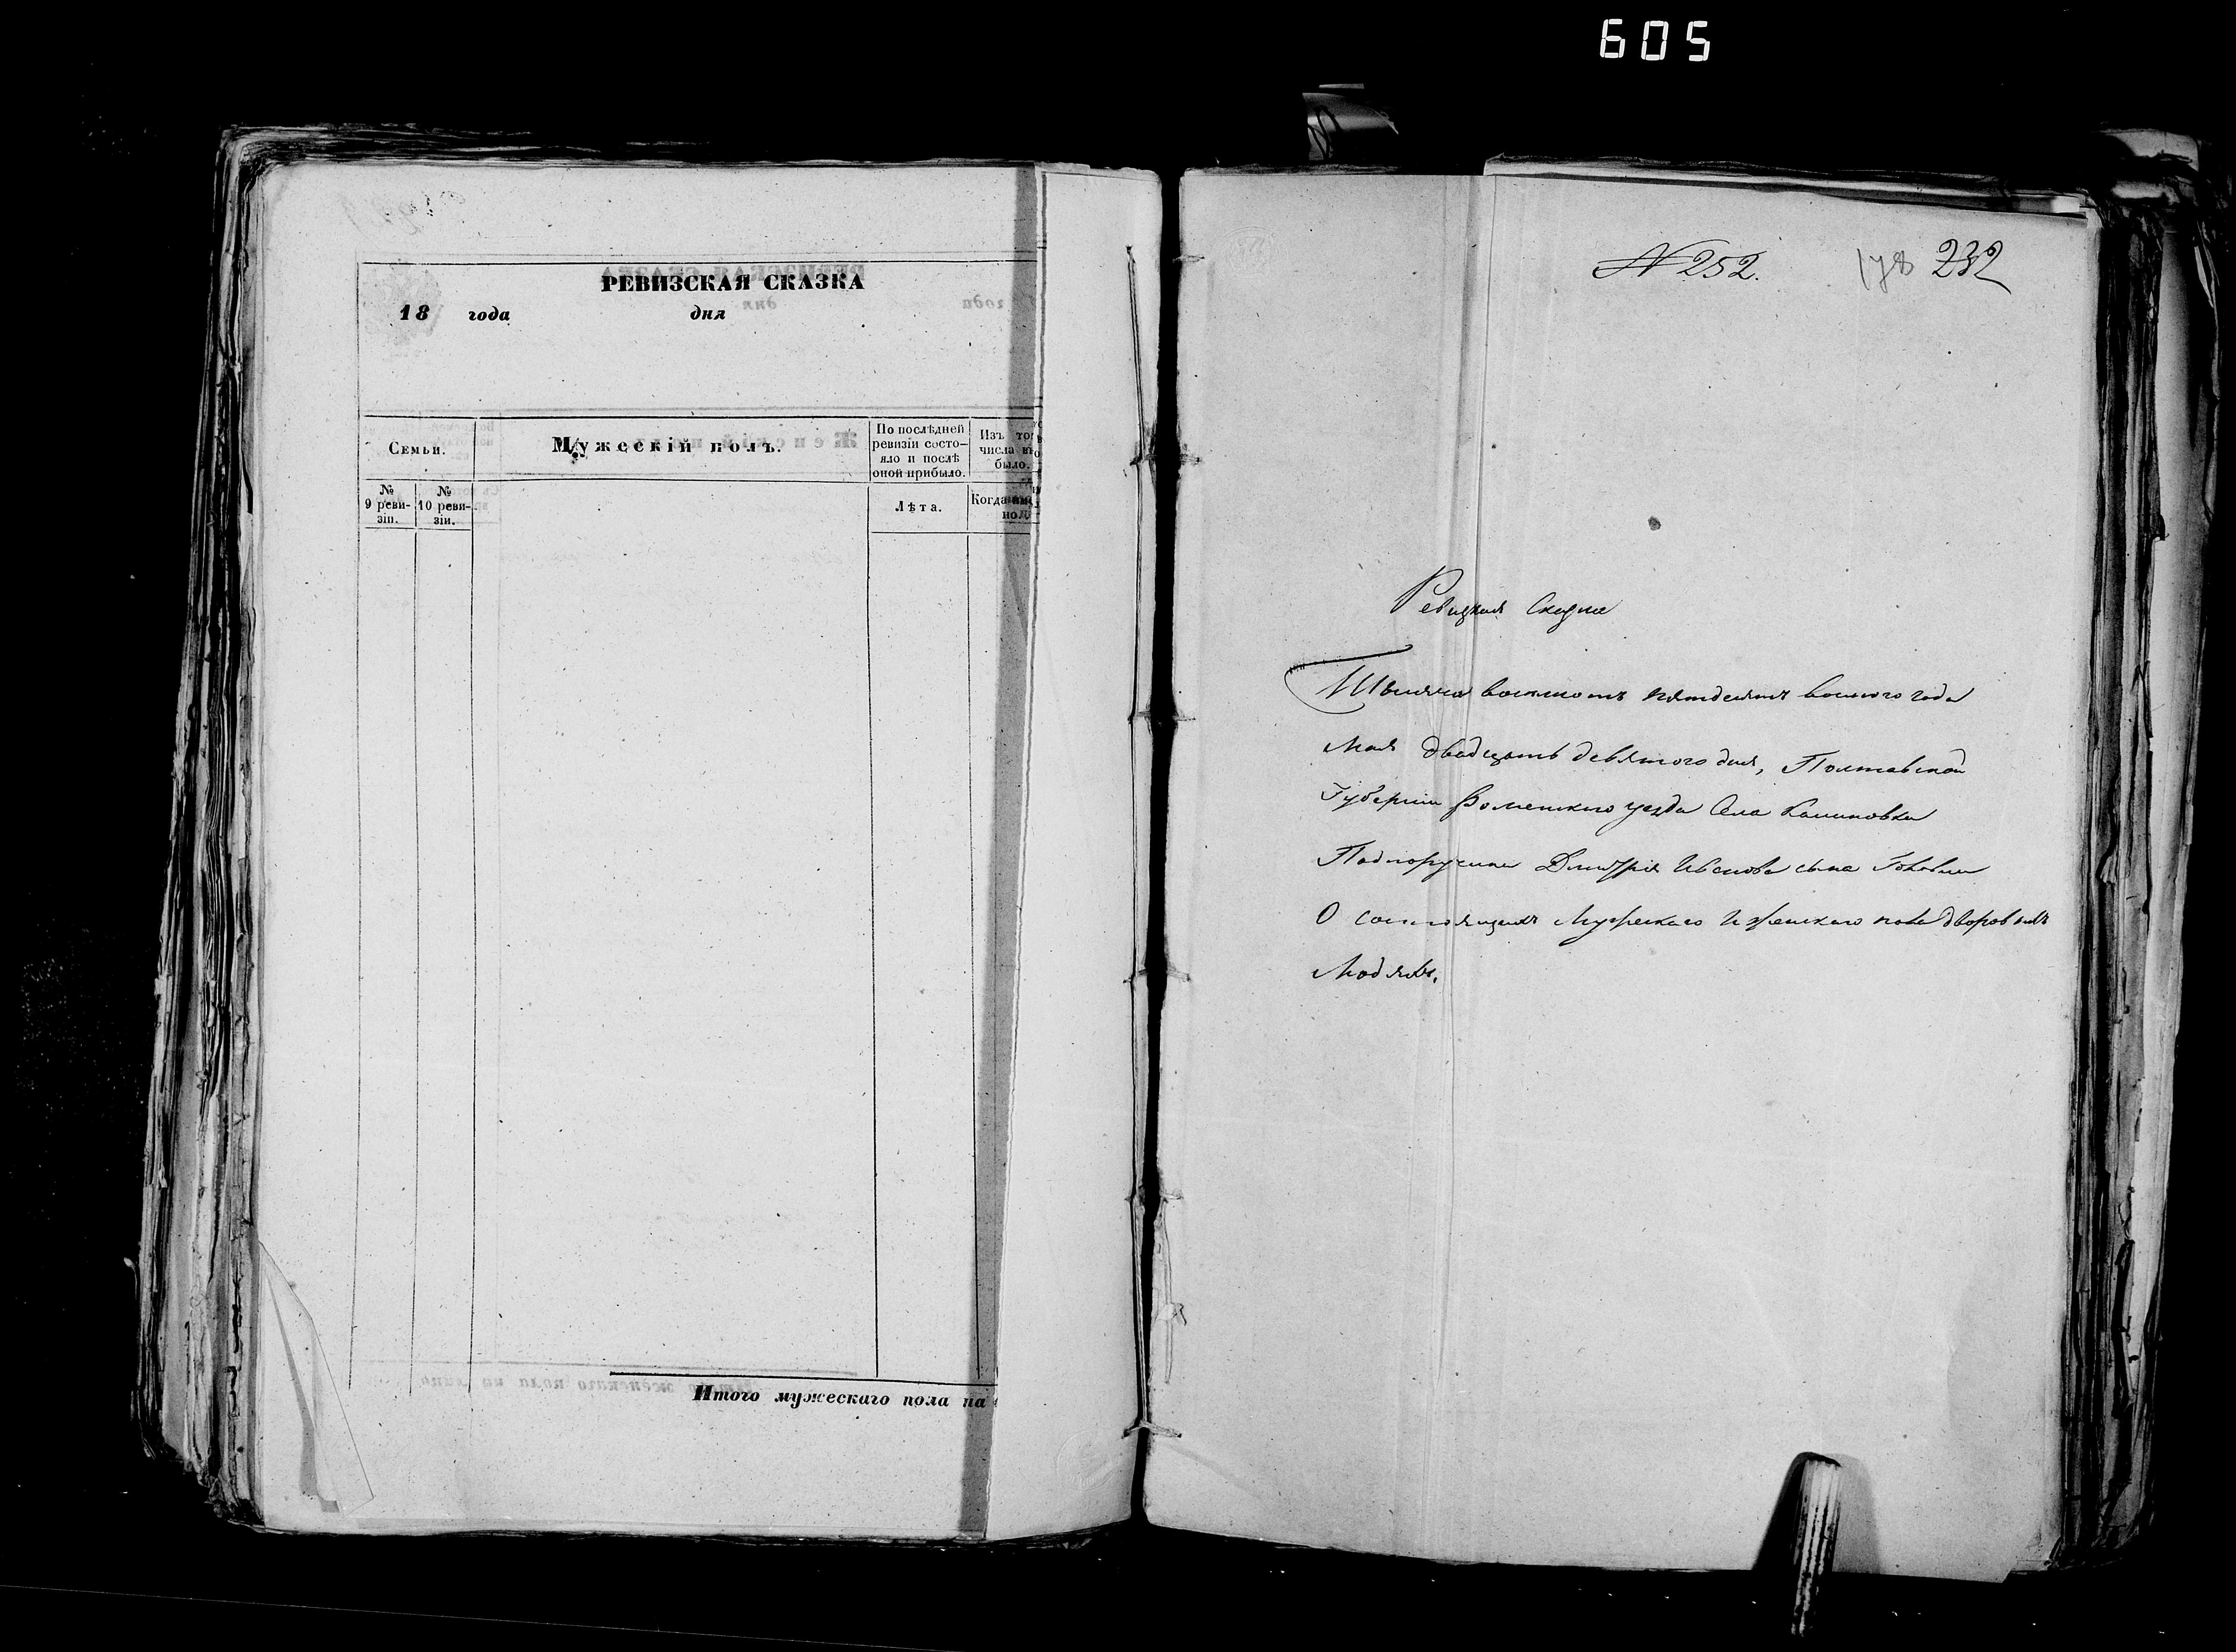 605
РЕВИЗСКАЯ СКАЗКА
18 года дня
Семьи.
Мужескій полъ.
По послѣдней
ревизіи состо-
яло и послѣ
оной прибыло.
Изъ то
числа
было.
№
9 реви-
зіи.
№
10 реви-
зіи.
Лѣта.
Когда
Итого мужескаго пола на
N 252. 178 232
Ревизкая Сказка
Тысяча восемсотъ пятдесятъ восмого года
Мая двадцать девятого дня, Полтавской
Губерніи Роменского уезда Села Калиновки
Подпоручика Дмитрія Иванова сына
О состоящихъ Мужескаго И женскаго пола дворовыхъ
Людяхъ.